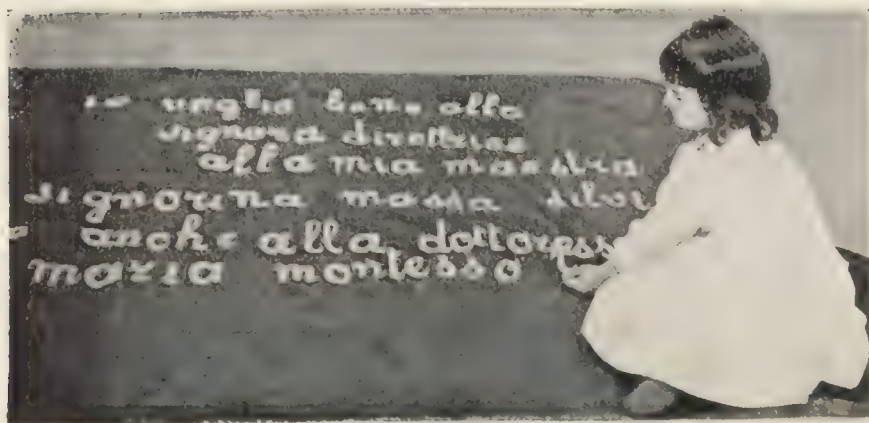 io voglio bene alla
signora direttrice
alla mia maestra
signorina massa silvi
e anche alla dottoress
maria montesso